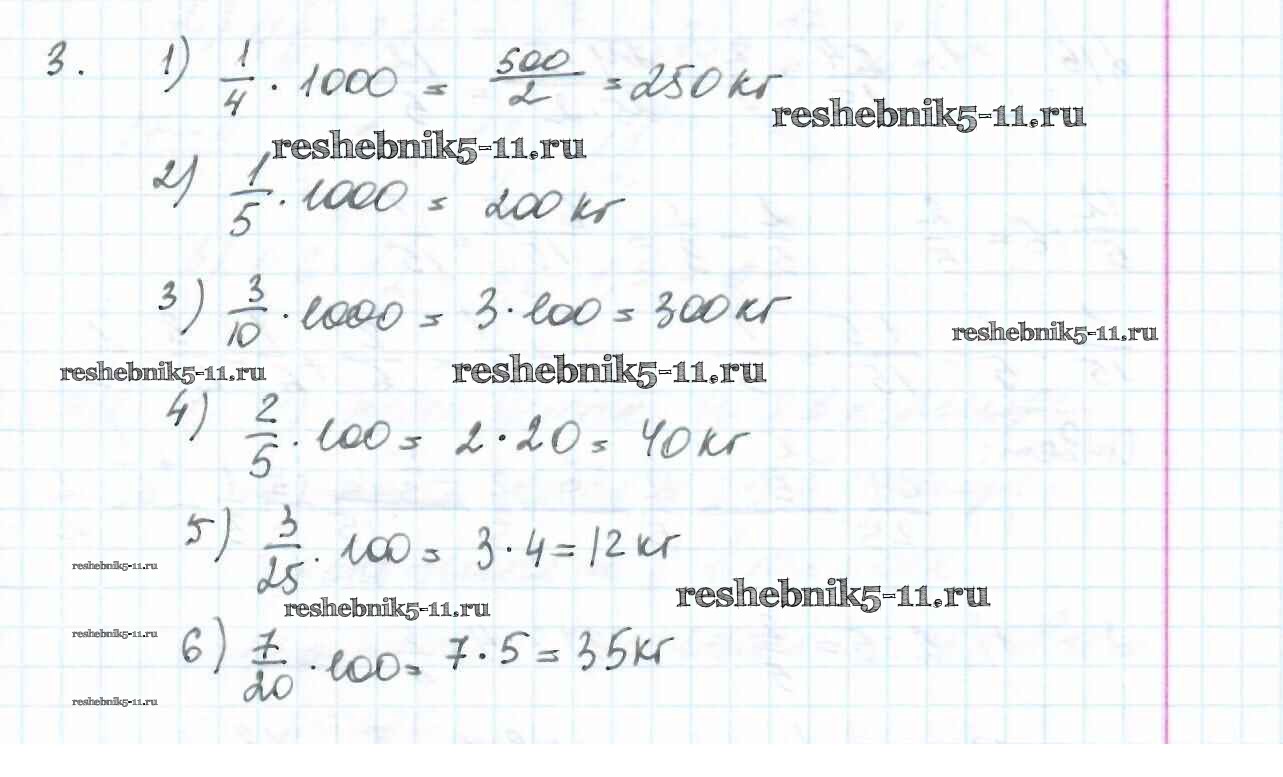 3. 1) 1/4 · 1000 = 500/2 = 250 кг
reshebnik5-11.ru
reshebnik5-11.ru
2) 1/5 · 1000 = 200 кг
3) 3/10 · 1000 = 3 · 100 = 300 кг
reshebnik5-11.ru
reshebnik5-11.ru
reshebnik5-11.ru
4) 2/5 · 100 = 2 · 20 = 40 кг
5) 3/25 · 100 = 3 · 4 = 12 кг
reshebnik5-11.ru
reshebnik5-11.ru
reshebnik5-11.ru
6) 7/20 · 100 = 7 · 5 = 35 кг
reshebnik5-11.ru
reshebnik5-11.ru